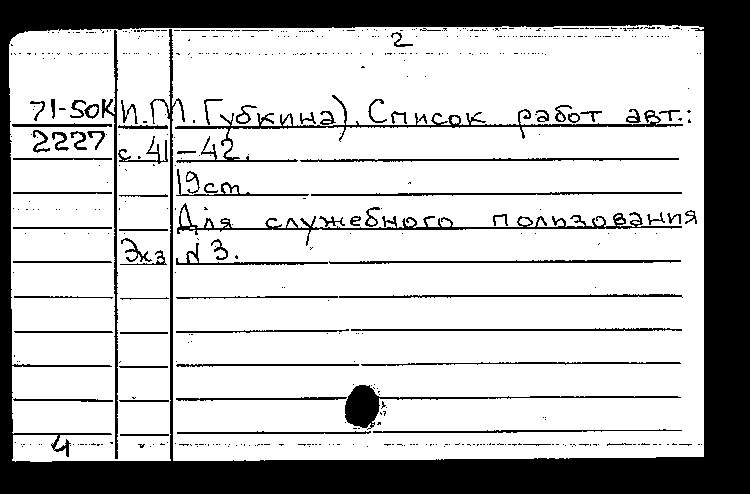 2
71-50К И.М. Губкина). Список работ авт.:
2227 с. 41-42.
19 ст.
Для служебного пользования
Экз. N 3.
4